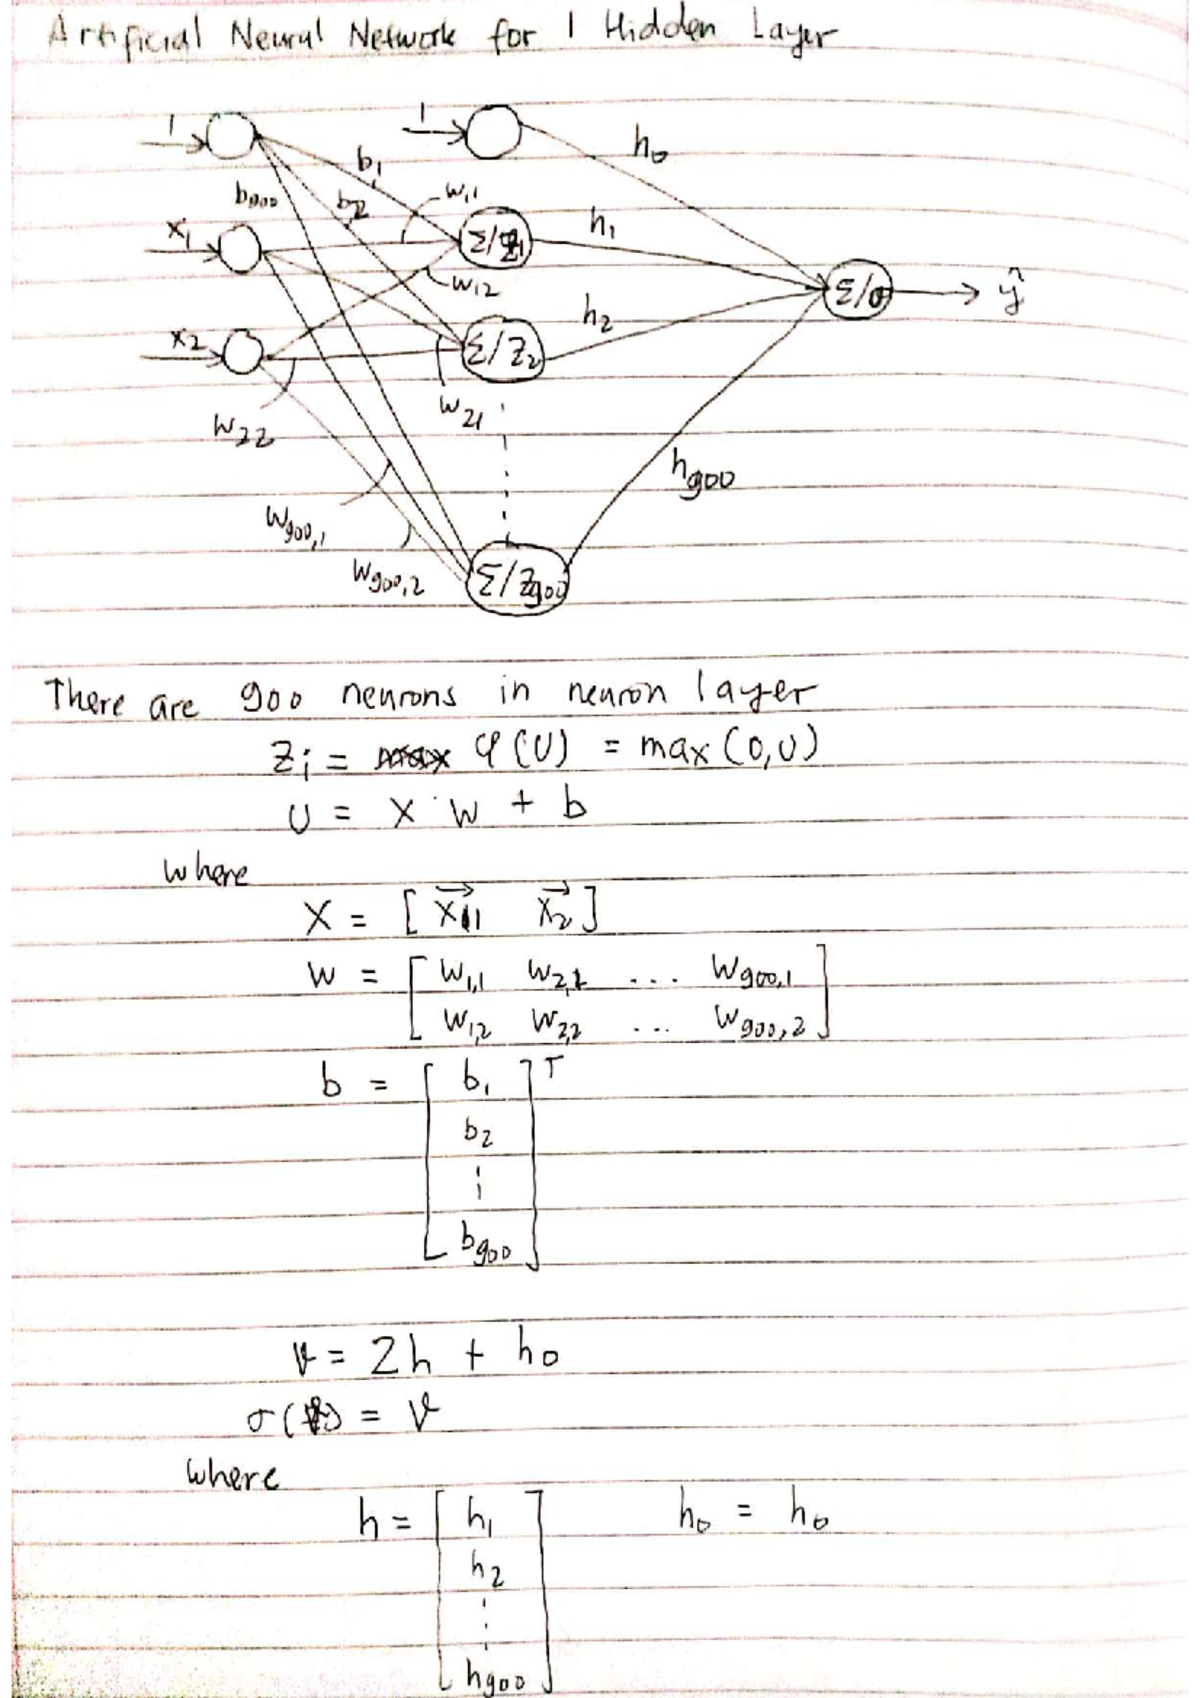 Artificial Neural Network for 1 Hidden Layer
1
1
h₀
b₁
b₉₀₀
b₂
w₁₁
x₁
Σ/z₁
h₁
w₁₂
Σ/σ
ŷ
x₂
Σ/z₂
h₂
w₂₂
w₂₁
h₉₀₀
w₉₀₀,₁
w₉₀₀,₂
Σ/z₉₀₀
There are 900 neurons in neuron layer
zᵢ = φ(U) = max(0,U)
U = X · W + b
where
X = [ x⃗₁ x⃗₂ ]
W = [ W₁,₁ W₂,₁ ... W₉₀₀,₁
W₁,₂ W₂,₂ ... W₉₀₀,₂ ]
b = [ b₁ ]ᵀ
b₂
⋮
b₉₀₀
v = Zh + h₀
σ(v) = v
where
h = [ h₁ ] h₀ = h₀
h₂
⋮
h₉₀₀